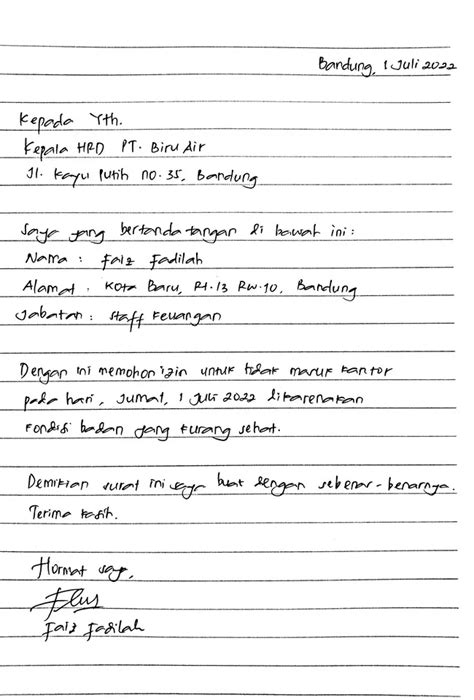 Bandung, 1 Juli 2022
Kepada Yth.
Kepala HRD PT. Biru Air
Jl. Kayu Putih no. 35, Bandung
Saya yang bertanda tangan di bawah ini :
Nama : Faiz Fadilah
Alamat : Kota Baru, Rt. 13 Rw. 10, Bandung
Jabatan : Staff Keuangan
Dengan ini memohon izin untuk tidak masuk kantor
pada hari, Jumat, 1 Juli 2022 dikarenakan
kondisi badan yang kurang sehat.
Demikian surat ini saya buat dengan sebenar-benarnya.
Terima kasih.
Hormat saya,
Faiz Fadilah